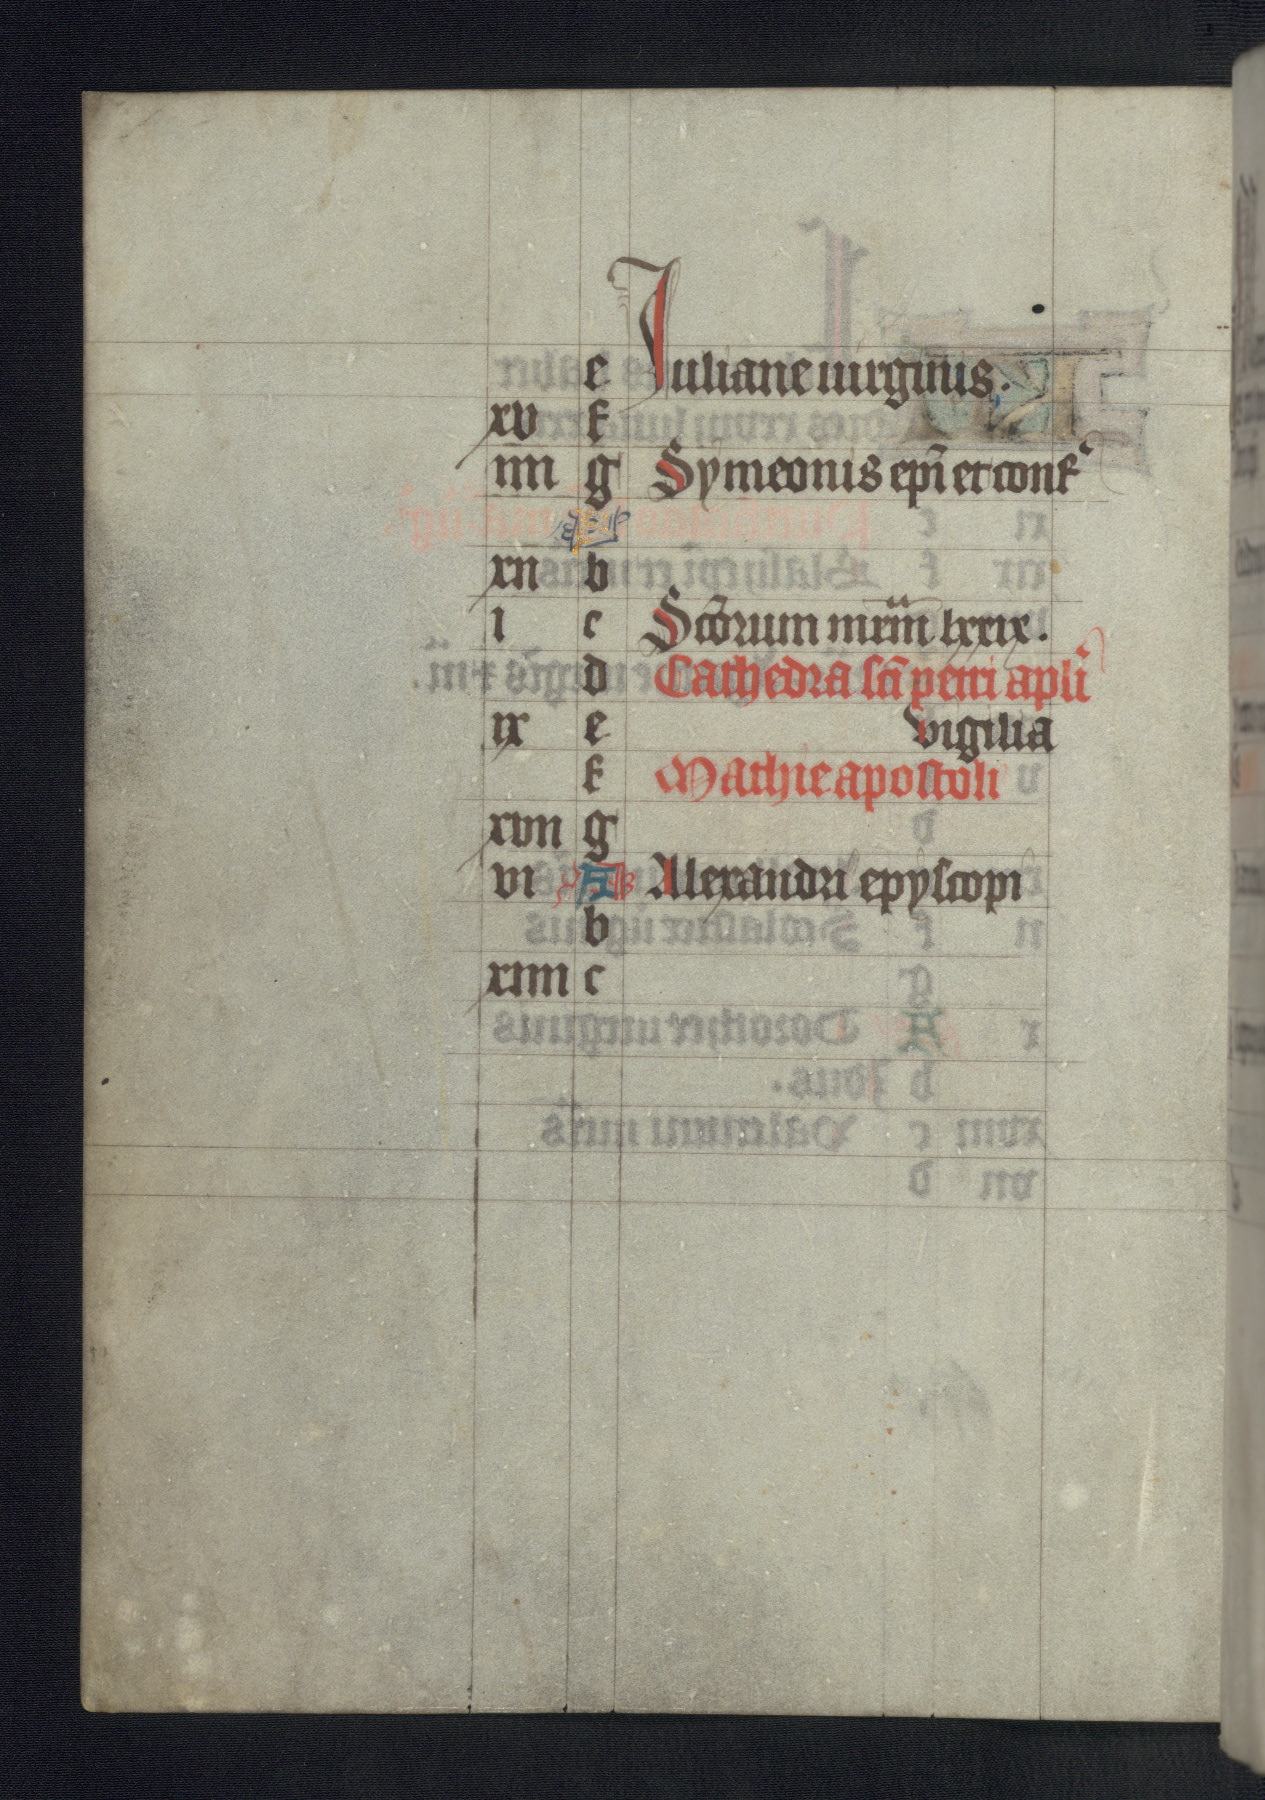 e Iuliane uirginis.
xv f
iiii g Symeonis ep̄i et conf̕
A
xii b
i c Sc̄orum mrm̄ lxxix.
d Cathedra sc̄i petri apl̕i
ix e vigilia
f Mathie apostoli
xvii g
vi A Alexandri epyscopi
b
xiiii c